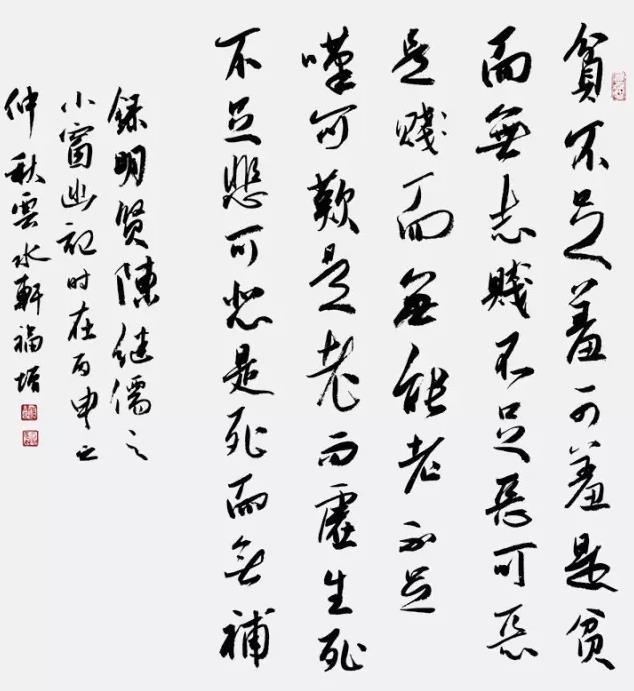 貧不足羞可羞是貧
而無志賤不足惡可惡
是賤而無能老不足
嘆可歎是老而虛生死
不足悲可悲是死而無補
録明賢陳继儒之
小窗幽記时在丙申之
仲秋雲水軒福